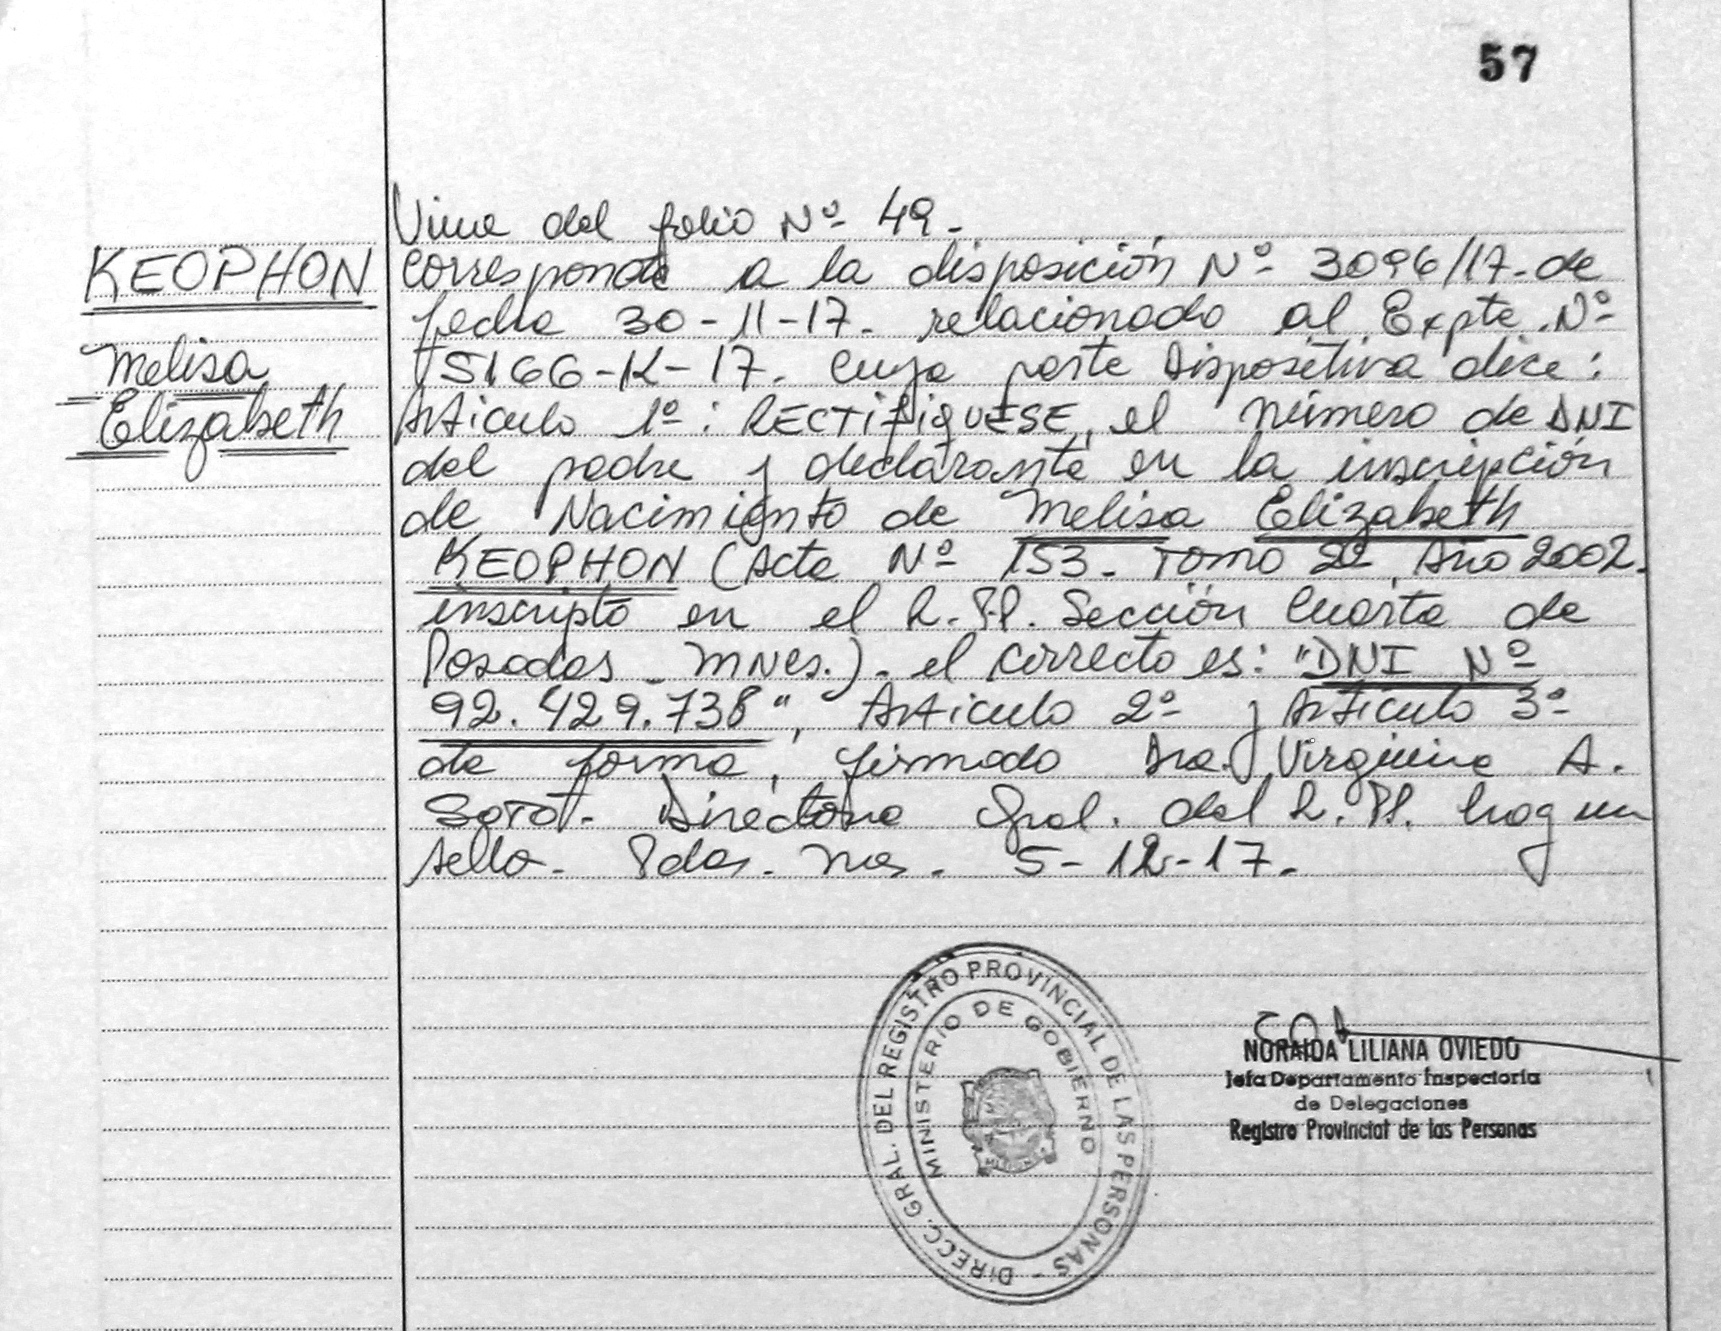 57
KEOPHON
Melisa
Elizabeth
Viene del folio Nº 49.-
Corresponde a la disposición Nº 3096/17.- de
fecha 30-11-17.- relacionado al Expte. Nº
5166-K-17.- cuya parte dispositiva dice:
Articulo 1º: RECTIFIQUESE, el número de DNI
del padre y declarante en la inscripción
de Nacimiento de Melisa Elizabeth
KEOPHON (Acta Nº 153.- Tomo 2º, Año 2002.
inscripto en el R.P.P. Sección Cuarta de
Posadas - MNes.).- el correcto es: "DNI Nº
92.429.738", Articulo 2º y Articulo 3º
de forma, firmado Dra. Virginia A.
Soto.- Directora Gral. del R.P.P. hay un
sello.- Pdas. Mnes. 5-12-17.-
DIRECC. GRAL. DEL REGISTRO PROVINCIAL DE LAS PERSONAS -
MINISTERIO DE GOBIERNO
NORAIDA LILIANA OVIEDO
Jefa Departamento Inspectoria
de Delegaciones
Registro Provincial de las Personas